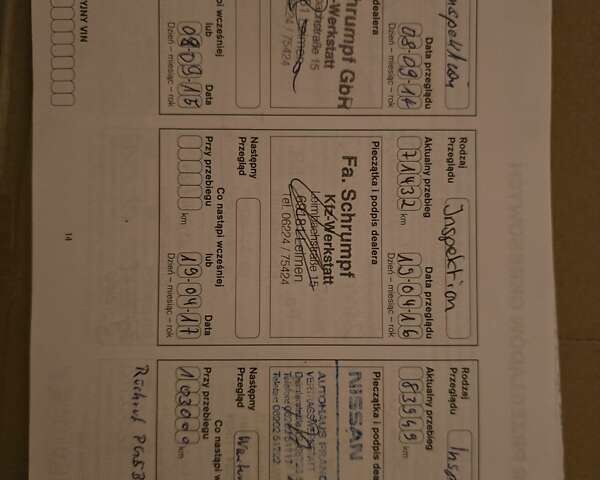 Inspektion
Data przeglądu
08-09-14
Dzień – miesiąc – rok
Schrumpf GbR
-Werkstatt
straße 15
Leimen
224 / 75424
wcześniej
lub
Data
08-09-15
Dzień – miesiąc – rok
YJNY VIN
Rodzaj
Przeglądu
Inspektion
Aktualny przebieg
Data przeglądu
71432 km
19-04-16
Dzień – miesiąc – rok
Pieczątka i podpis dealera
Fa. Schrumpf
Kfz-Werkstatt
Leimbachstraße 15
69181 Leimen
Tel. 06224 / 75424
Następny
Przegląd
Co nastąpi wcześniej
Przy przebiegu
lub
Data
km
19-04-17
Dzień – miesiąc – rok
14
Rodzaj
Przeglądu
Insp
Aktualny przebieg
83949 km
Pieczątka i podpis dea
NISSAN
AUTOHAUS
Następny
Przegląd
Co nastąpi w
Przy przebiegu
103000 km